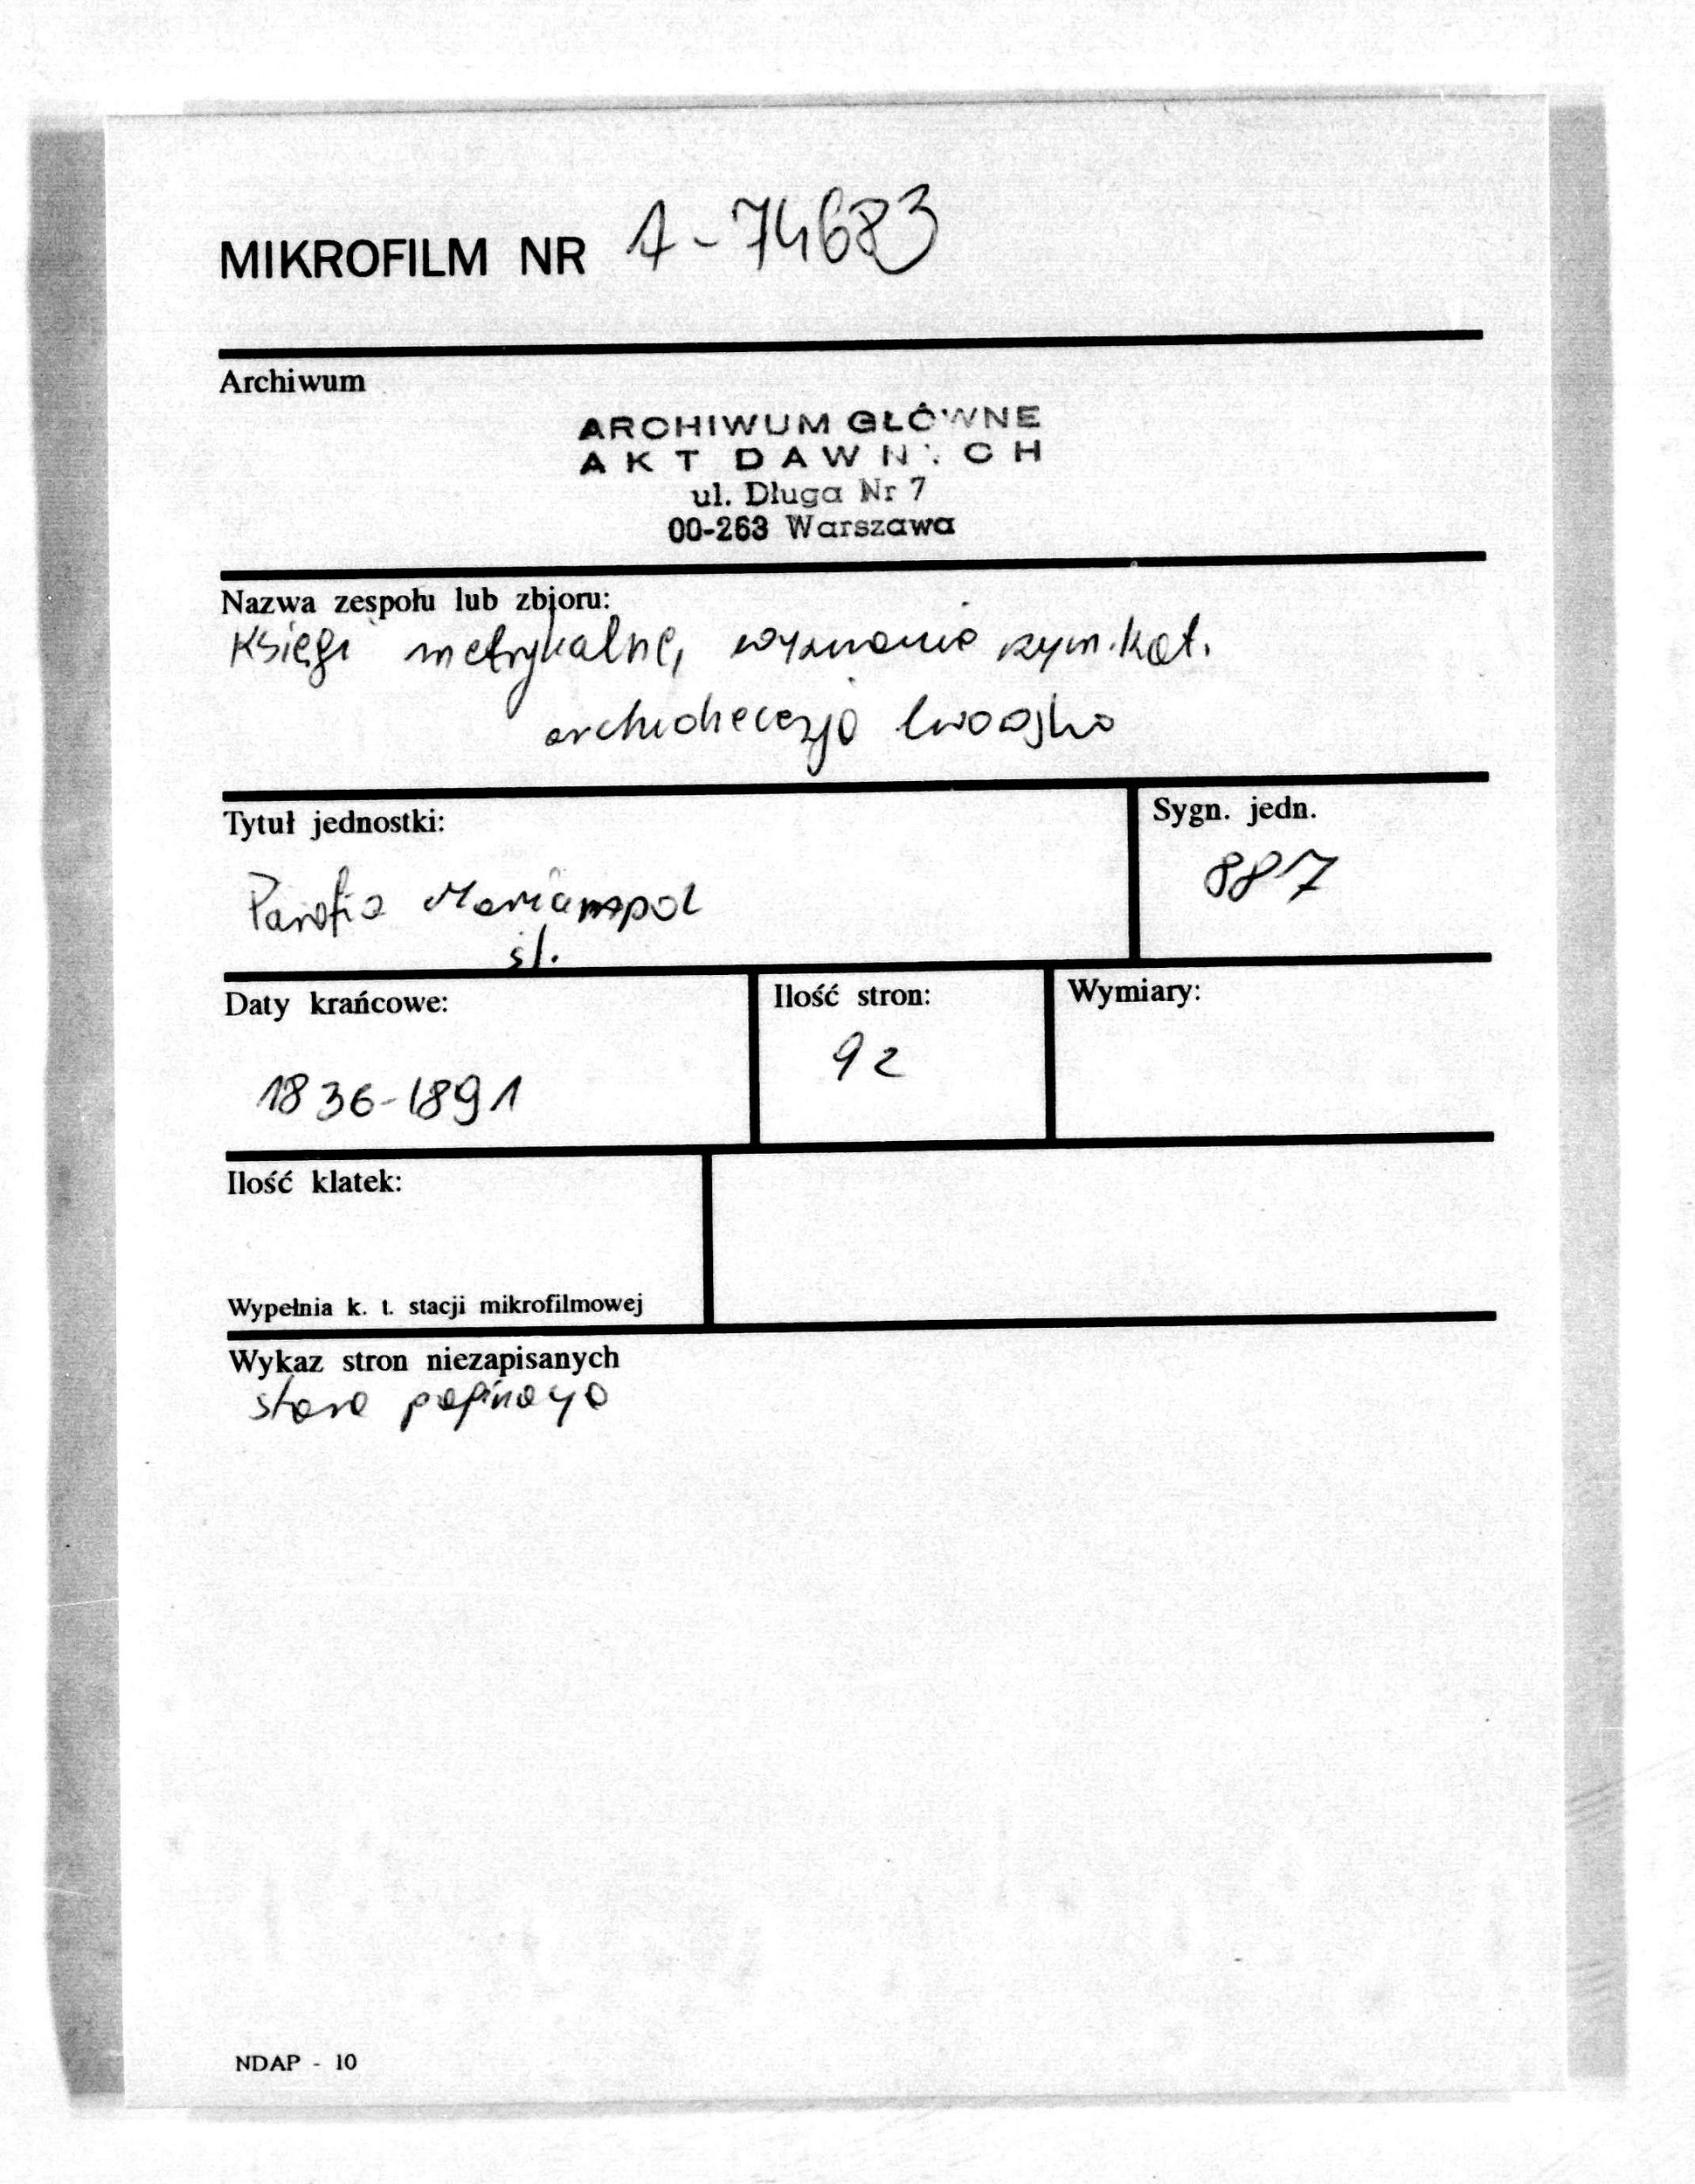 MIKROFILM NR A-74683
Archiwum
ARCHIWUM GŁÓWNE
AKT DAWNYCH
ul. Długa Nr 7
00-263 Warszawa
Nazwa zespołu lub zbioru:
Księgi metrykalne, wyznanie rzym.kat.
archidiecezja lwowska
Tytuł jednostki:
Sygn. jedn.
Parafia Mariampol
887
śl.
Daty krańcowe:
Ilość stron:
Wymiary:
1836-1891
92
Ilość klatek:
Wypełnia k. t. stacji mikrofilmowej
Wykaz stron niezapisanych
stara paginacja
NDAP - 10